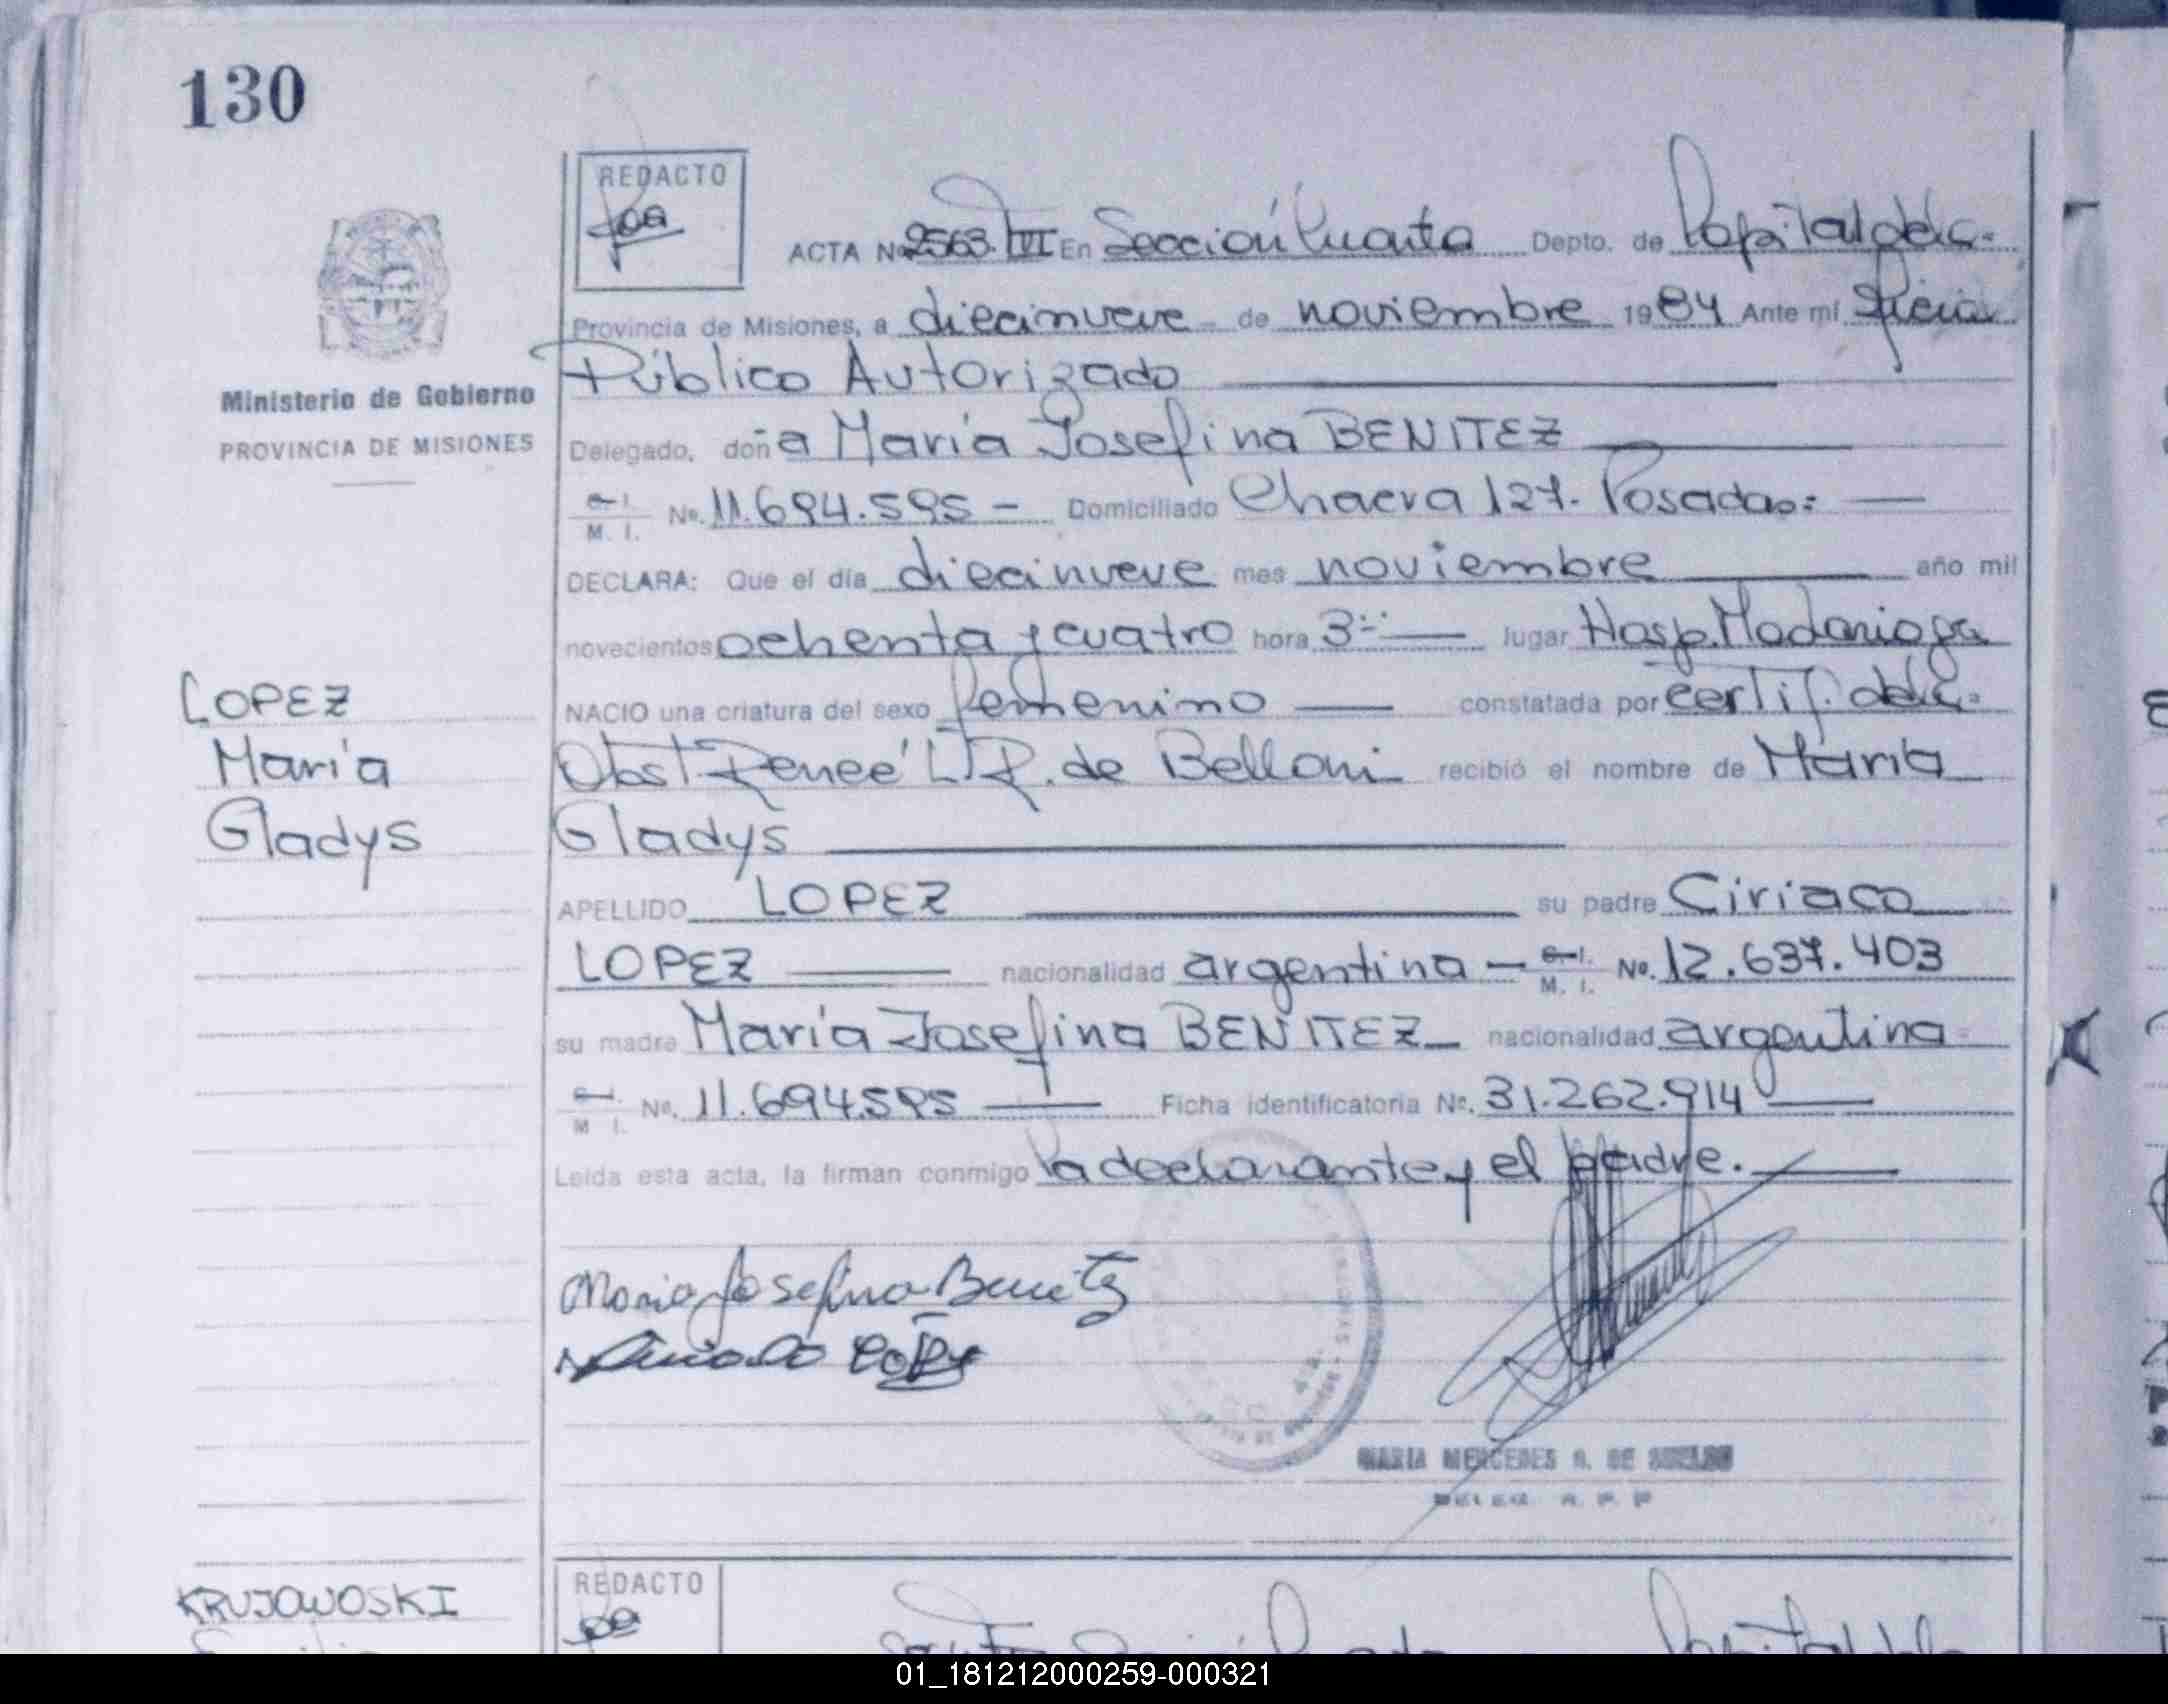 130
REDACTO
ACTA Nº 2563. TVI En Sección Cuarta Depto. de Capital de la
Provincia de Misiones, a diecinueve de noviembre 1984 Ante mí Oficial
Público Autorizado
Ministerio de Gobierno
PROVINCIA DE MISIONES
Delegado, doña María Josefina BENITEZ
C.I. M. I. Nº. 11.694.595 - Domiciliado Chacra 127. Posadas:
DECLARA: Que el día diecinueve mes noviembre año mil
novecientos ochenta y cuatro hora 3 lugar Hosp. Madariaga
NACIO una criatura del sexo femenino constatada por certif. de la
Obst. Reneé L. R. de Belloni recibió el nombre de María
Gladys
LOPEZ
María
Gladys
APELLIDO LOPEZ su padre Ciriaco
LOPEZ nacionalidad argentina - C.I. M. I. Nº. 12.637.403
su madre María Josefina BENITEZ nacionalidad argentina
C.I. M. I. Nº. 11.694.595 Ficha identificatoria Nº. 31.262.914
Leída esta acta, la firman conmigo la declarante y el padre.
Maria Josefina Benitez
Ciriaco Lopez
MARIA MERCEDES G. DE
DELEG. R. P. P
KRUJOWOSKI
REDACTO
01_181212000259-000321